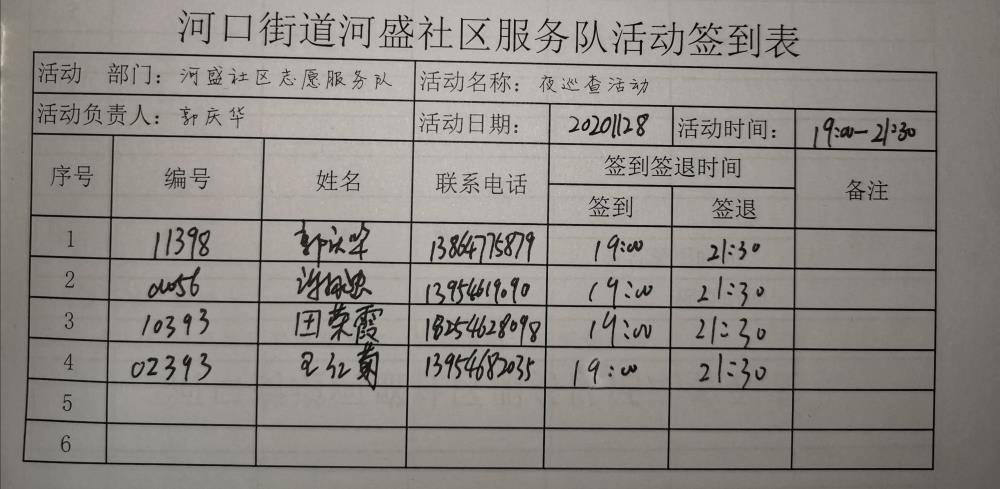 河口街道河盛社区服务队活动签到表
活动 部门：河盛社区志愿服务队 活动名称：夜巡查活动
活动负责人：郭庆华 活动日期：20201128 活动时间：19:00-21:30
序号 编号 姓名 联系电话 签到签退时间 备注
签到 签退
1 11398 郭庆华 13864775879 19:00 21:30
2 13954619090 19:00 21:30
3 10393 田荣霞 18254628098 19:00 21:30
4 02393 王红菊 13954682035 19:00 21:30
5
6